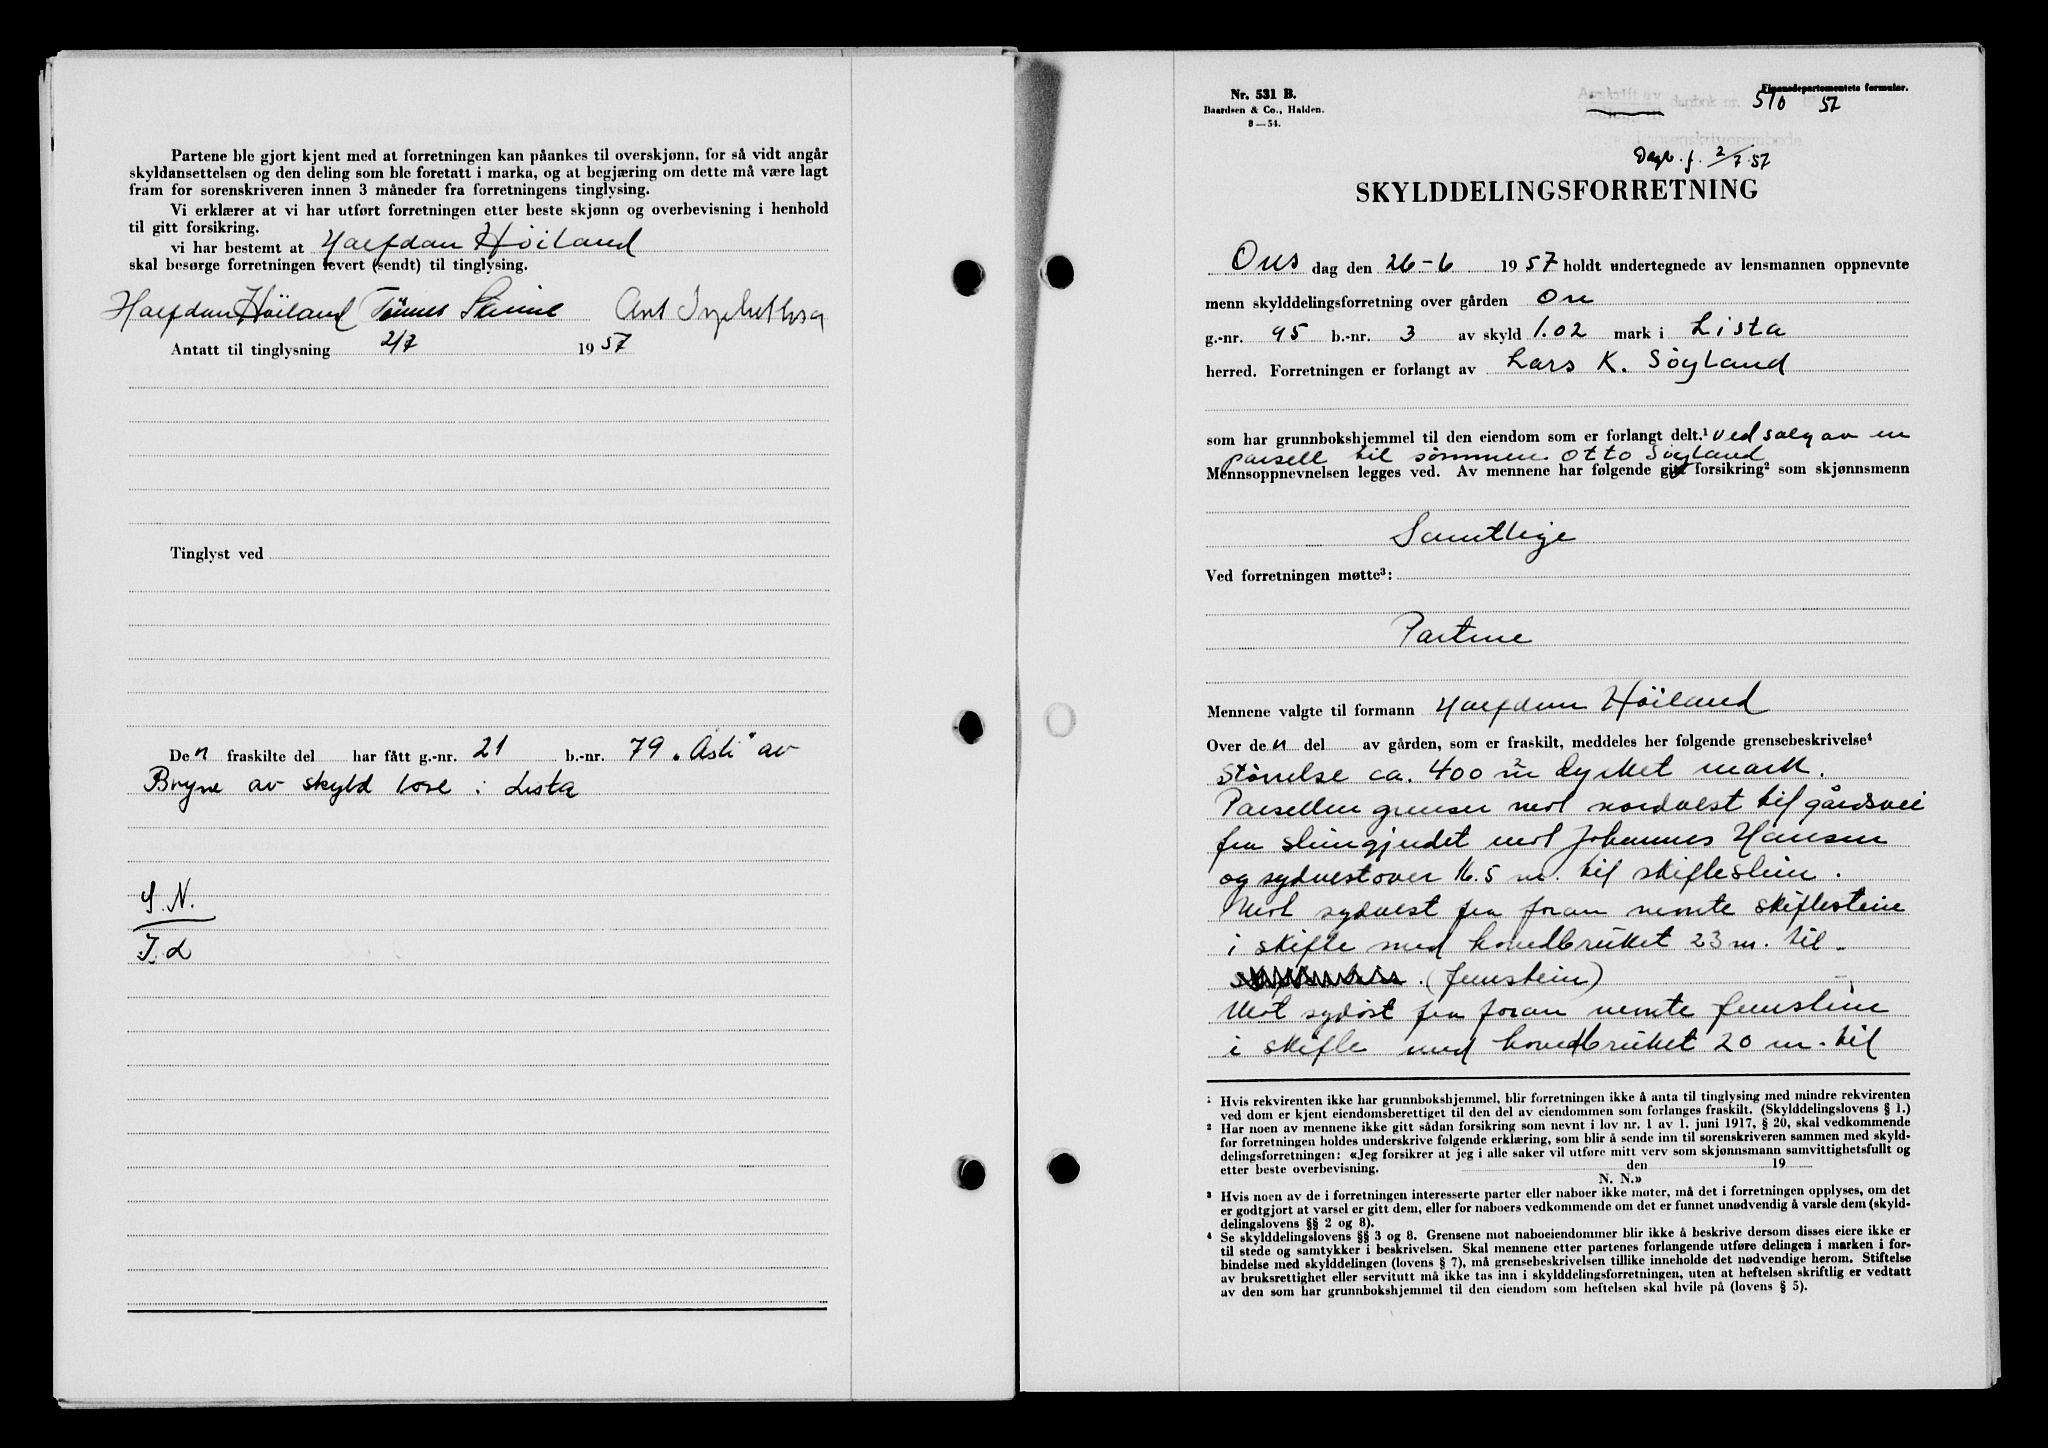 Partene ble gjort kjent med at forretningen kan påankes til overskjønn, for så vidt angår
skyldansettelsen og den deling som ble foretatt i marka, og at begjæring om dette må være lagt
fram for sorenskriveren innen 3 måneder fra forretningens tinglysing.
Vi erklærer at vi har utført forretningen etter beste skjønn og overbevisning i henhold
til gitt forsikring.
vi har bestemt at Halfdan Höiland
skal besørge forretningen levert (sendt) til tinglysing.
Halfdan Höiland Tønnes
Antatt til tinglysning 2/7 1957
Tinglyst ved
Den fraskilte del har fått g.-nr. 21 b.-nr. 79 "Asli" av
Bryne av skyld 1 øre i Lista
S. N.
T. L
Nr. 531 B.
Baardsen & Co., Halden.
8—54.
Finansdepartementets formular.
Avskrift av dagbok nr. 510 1957
sorenskriverembede
Dagb. f. 2/7 57
SKYLDDELINGSFORRETNING
Ons dag den 26-6 1957 holdt undertegnede av lensmannen oppnevnte
menn skylddelingsforretning over gården Ore
g.-nr. 95 b.-nr. 3 av skyld 1.02 mark i Lista
herred. Forretningen er forlangt av Lars K. Söyland
som har grunnbokshjemmel til den eiendom som er forlangt delt.¹ ved salg av en
parsell til sønnen Otto Søyland
Mennsoppnevnelsen legges ved. Av mennene har følgende gitt forsikring² som skjønnsmenn
Samtlige
Ved forretningen møtte³:
Partene
Mennene valgte til formann Halfdan Höiland
Over den del av gården, som er fraskilt, meddeles her følgende grensebeskrivelse⁴
Störrelse ca. 400 m² dyrket mark.
Parsellen grenser mot nordvest til gårdsvei
fra steingjerdet mot Johannes Hansen
og sydvestover 16.5 m. til skiftestein.
Mot sydvest fra foran nemte skiftesteine
i skifte med hovedbruket 23 m. til
(jernstein)
Mot sydöst fra foran nemte jernsteine
i skifte med hovedbruket 20 m. til
¹ Hvis rekvirenten ikke har grunnbokshjemmel, blir forretningen ikke å anta til tinglysing med mindre rekvirenten
ved dom er kjent eiendomsberettiget til den del av eiendommen som forlanges fraskilt. (Skylddelingslovens § 1.)
² Har noen av mennene ikke gitt sådan forsikring som nevnt i lov nr. 1 av 1. juni 1917, § 20, skal vedkommende
før forretningen holdes underskrive følgende erklæring, som blir å sende inn til sorenskriveren sammen med skyld-
delingsforretningen: «Jeg forsikrer at jeg i alle saker vil utføre mitt verv som skjønnsmann samvittighetsfullt og
etter beste overbevisning. den 19
N. N.»
³ Hvis noen av de i forretningen interesserte parter eller naboer ikke møter, må det i forretningen opplyses, om det
er godtgjort at varsel er gitt dem, eller for naboers vedkommende om det er funnet unødvendig å varsle dem (skyld-
delingslovens §§ 2 og 8).
⁴ Se skylddelingslovens §§ 3 og 8. Grensene mot naboeiendommer blir ikke å beskrive dersom disses eiere ikke er
til stede og samtykker i beskrivelsen. Skal mennene etter partenes forlangende utføre delingen i marken i for-
bindelse med skylddelingen (lovens § 7), må grensebeskrivelsen tillike inneholde det nødvendige herom. Stiftelse
av bruksrettighet eller servitutt må ikke tas inn i skylddelingsforretningen, uten at heftelsen skriftlig er vedtatt
av den som har grunnbokshjemmel til den eiendom som heftelsen skal hvile på (lovens § 5).